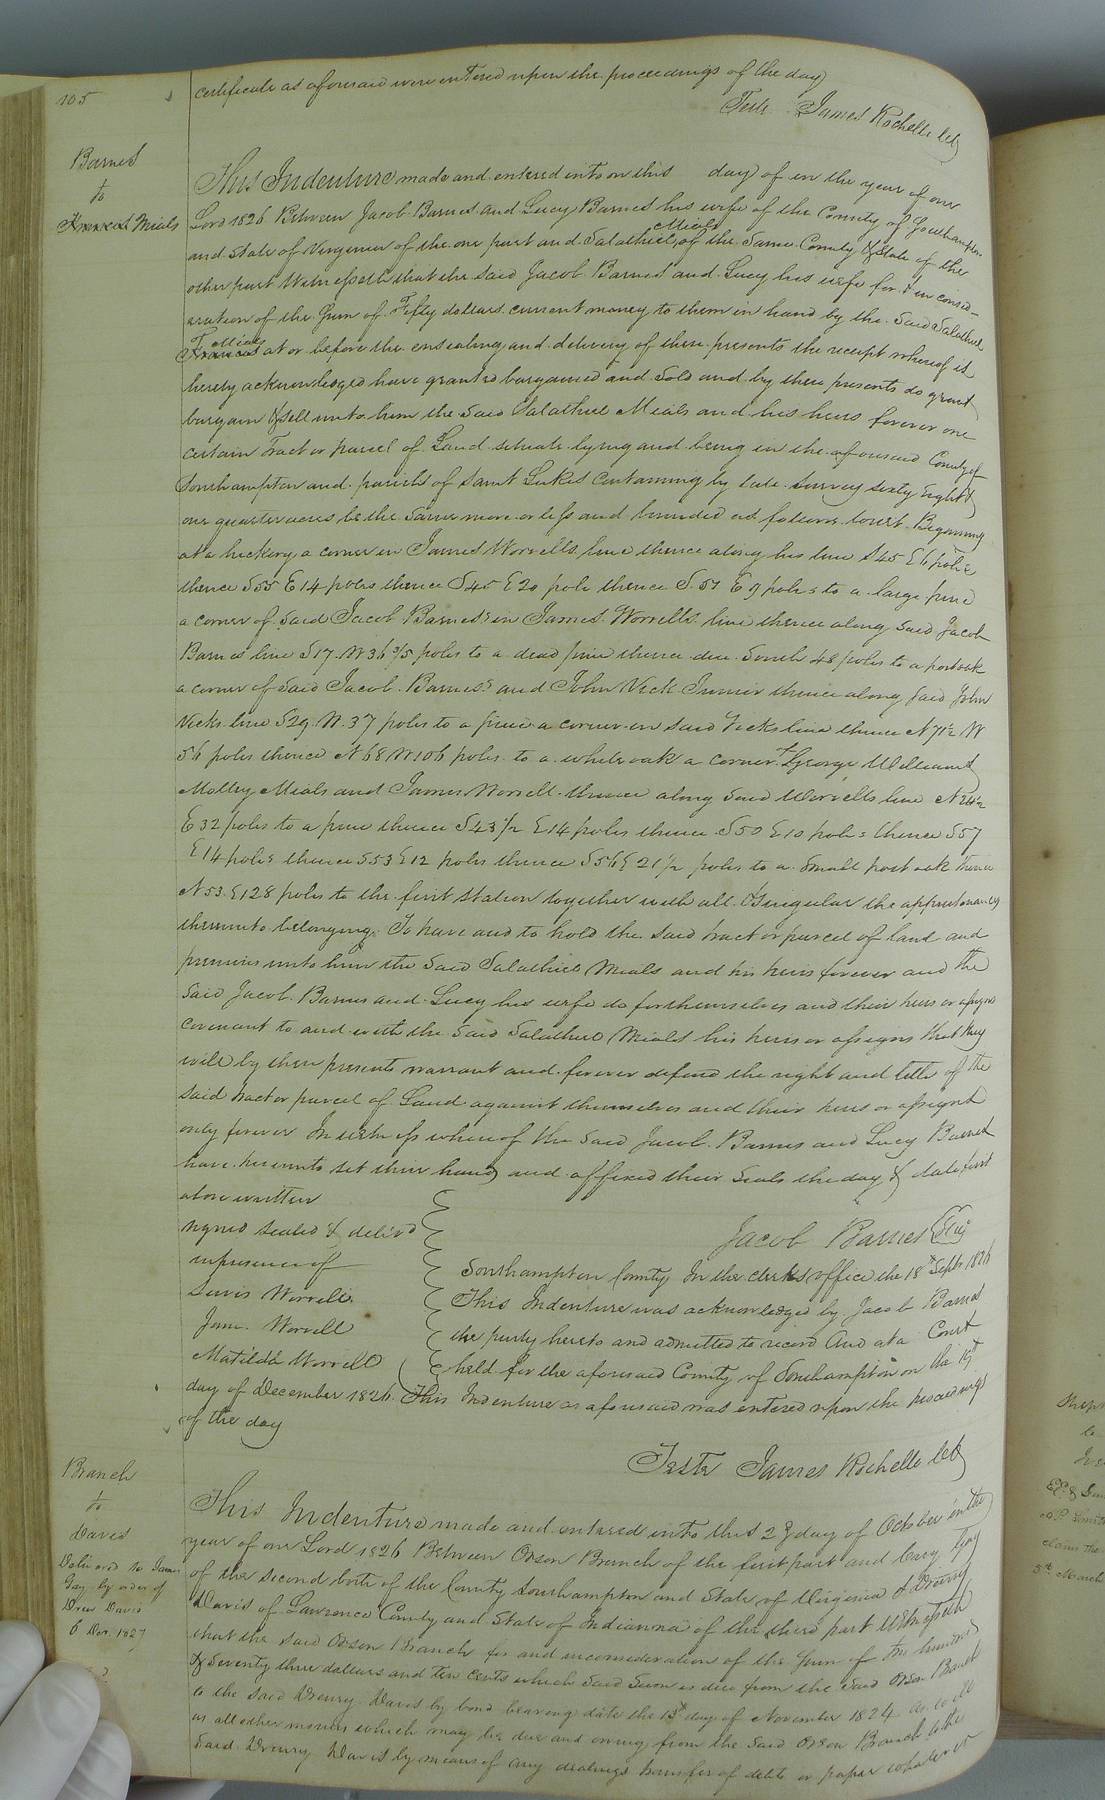 certificate as aforesaid were entered upon the proceedings of the day
Teste James Rochelle clk
105
Barnes
to
Meals
This Indenture made and entered into on this day of in the year of our
Lord 1826 Between Jacob Barnes and Lucy Barnes his wife of the County of Southampton
and State of Virginia of the one part and Salathiel Meals of the Same County & State of the
other part Witnesseth that the said Jacob Barnes and Lucy his wife for & in consid-
eration of the Sum of Fifty dollars current money to them in hand by the Said Salathiel
Meals at or before the ensealing and delivery of these presents the receipt whereof is
hereby acknowledged have granted bargained and Sold and by these presents do grant
bargain & sell unto him the Said Salathiel Meals and his heirs forever one
certain Tract or parcel of Land situate lying and being in the aforesaid County of
Southampton and parish of Saint Lukes Containing by late Survey sixty Eight &
one quarter acres be the Same more or less and bounded as follows towit Beginning
at a hickory a corner in James Worrells line thence along his line S 45 E 6 poles
thence S55 E 14 poles thence S45 E 20 pole thence S 57 E 9 poles to a large pine
a corner of Said Jacob Barnes's in James Worrells line thence along Said Jacob
Barnes line S17 W 36 3/5 poles to a dead pine thence due South 48 poles to a postoak
a corner of Said Jacob Barnes's and John Vick Junior thence along Said John
Vicks line S29 W 37 poles to a pine a corner in said Vicks line thence N 71½ W
56 poles thence N 68 W 106 poles to a white oak a corner of George Williams
Molley Meals and James Worrell thence along Said Worrells line N 24½
E 32 poles to a pine thence S43½ E 14 poles thence S50 E 10 poles thence S57
E 14 poles thence S53 E 12 poles thence S56 E 21½ poles to a Small post oak thence
N 53 E 128 poles to the first Station together with all & Singular the appurtenances
thereunto belonging To have and to hold the said tract or parcel of land and
premises unto him the Said Salathiel Meals and his heirs forever and the
Said Jacob Barnes and Lucy his wife do for themselves and their heirs or assigns
covenant to and with the Said Salathiel Meals his heirs or assigns that they
will by these presents warrant and forever defend the right and title of the
said tract or parcel of Land against themselves and their heirs or assigns
only forever In witness whereof the Said Jacob Barnes and Lucy Barnes
have hereunto set their hands and affixed their Seals the day & date first
above written
signed sealed & deliv'd
in presence of
Lewis Worrell
Jam. Worrell
Matilda Worrell
Jacob Barnes Seal
Southampton County In the clerks office the 18th Septr 1826
This Indenture was acknowledged by Jacob Barnes
the party hereto and admitted to record And at a Court
held for the aforesaid County of Southampton on the 19th
day of December 1826 This Indenture as aforesaid was entered upon the proceedings
of the day
Teste James Rochelle clk
Branch
to
Davis
Delivered to James
Gay by order of
Drew Davis
6 Dec. 1827
This Indenture made and entered into this 23 day of October in the
year of our Lord 1826 Between Orson Branch of the first part and Cary Gay
of the second both of the County Southampton and State of Virginia & Drewry
Davis of Lawrence County and State of Indianna of the third part Witnesseth
that the said Orson Branch for and in consideration of the Sum of two hundred
& Seventy three dollars and ten Cents which Said Sum is due from the Said Orson Branch
to the Said Drewry Davis by bond bearing date the 13th day of November 1824 as well
as all other monies which may be due and owing from the Said Orson Branch to the
Said Drewry Davis by means of any dealings transfer of debts or paper whatever
5th March